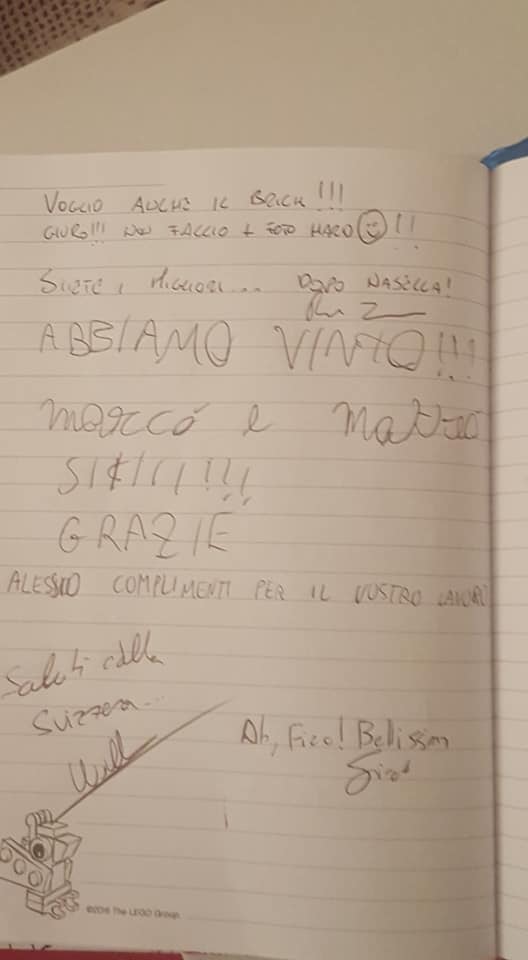 VOGLIO ANCHE IL BRICK!!!
GIURO!!! NON FACCIO + FOTO MARO !!
SIETE I MIGLIORI.... DOPO NASELLA!
ABBIAMO VINTO!!!
Marco e Matteo
SIIIII!!!
GRAZIE
ALESSIO COMPLIMENTI PER IL VOSTRO LAVORO
Saluti dalla
Svizzera...
Ah, Fico! Bellissim
©2016 The LEGO Group